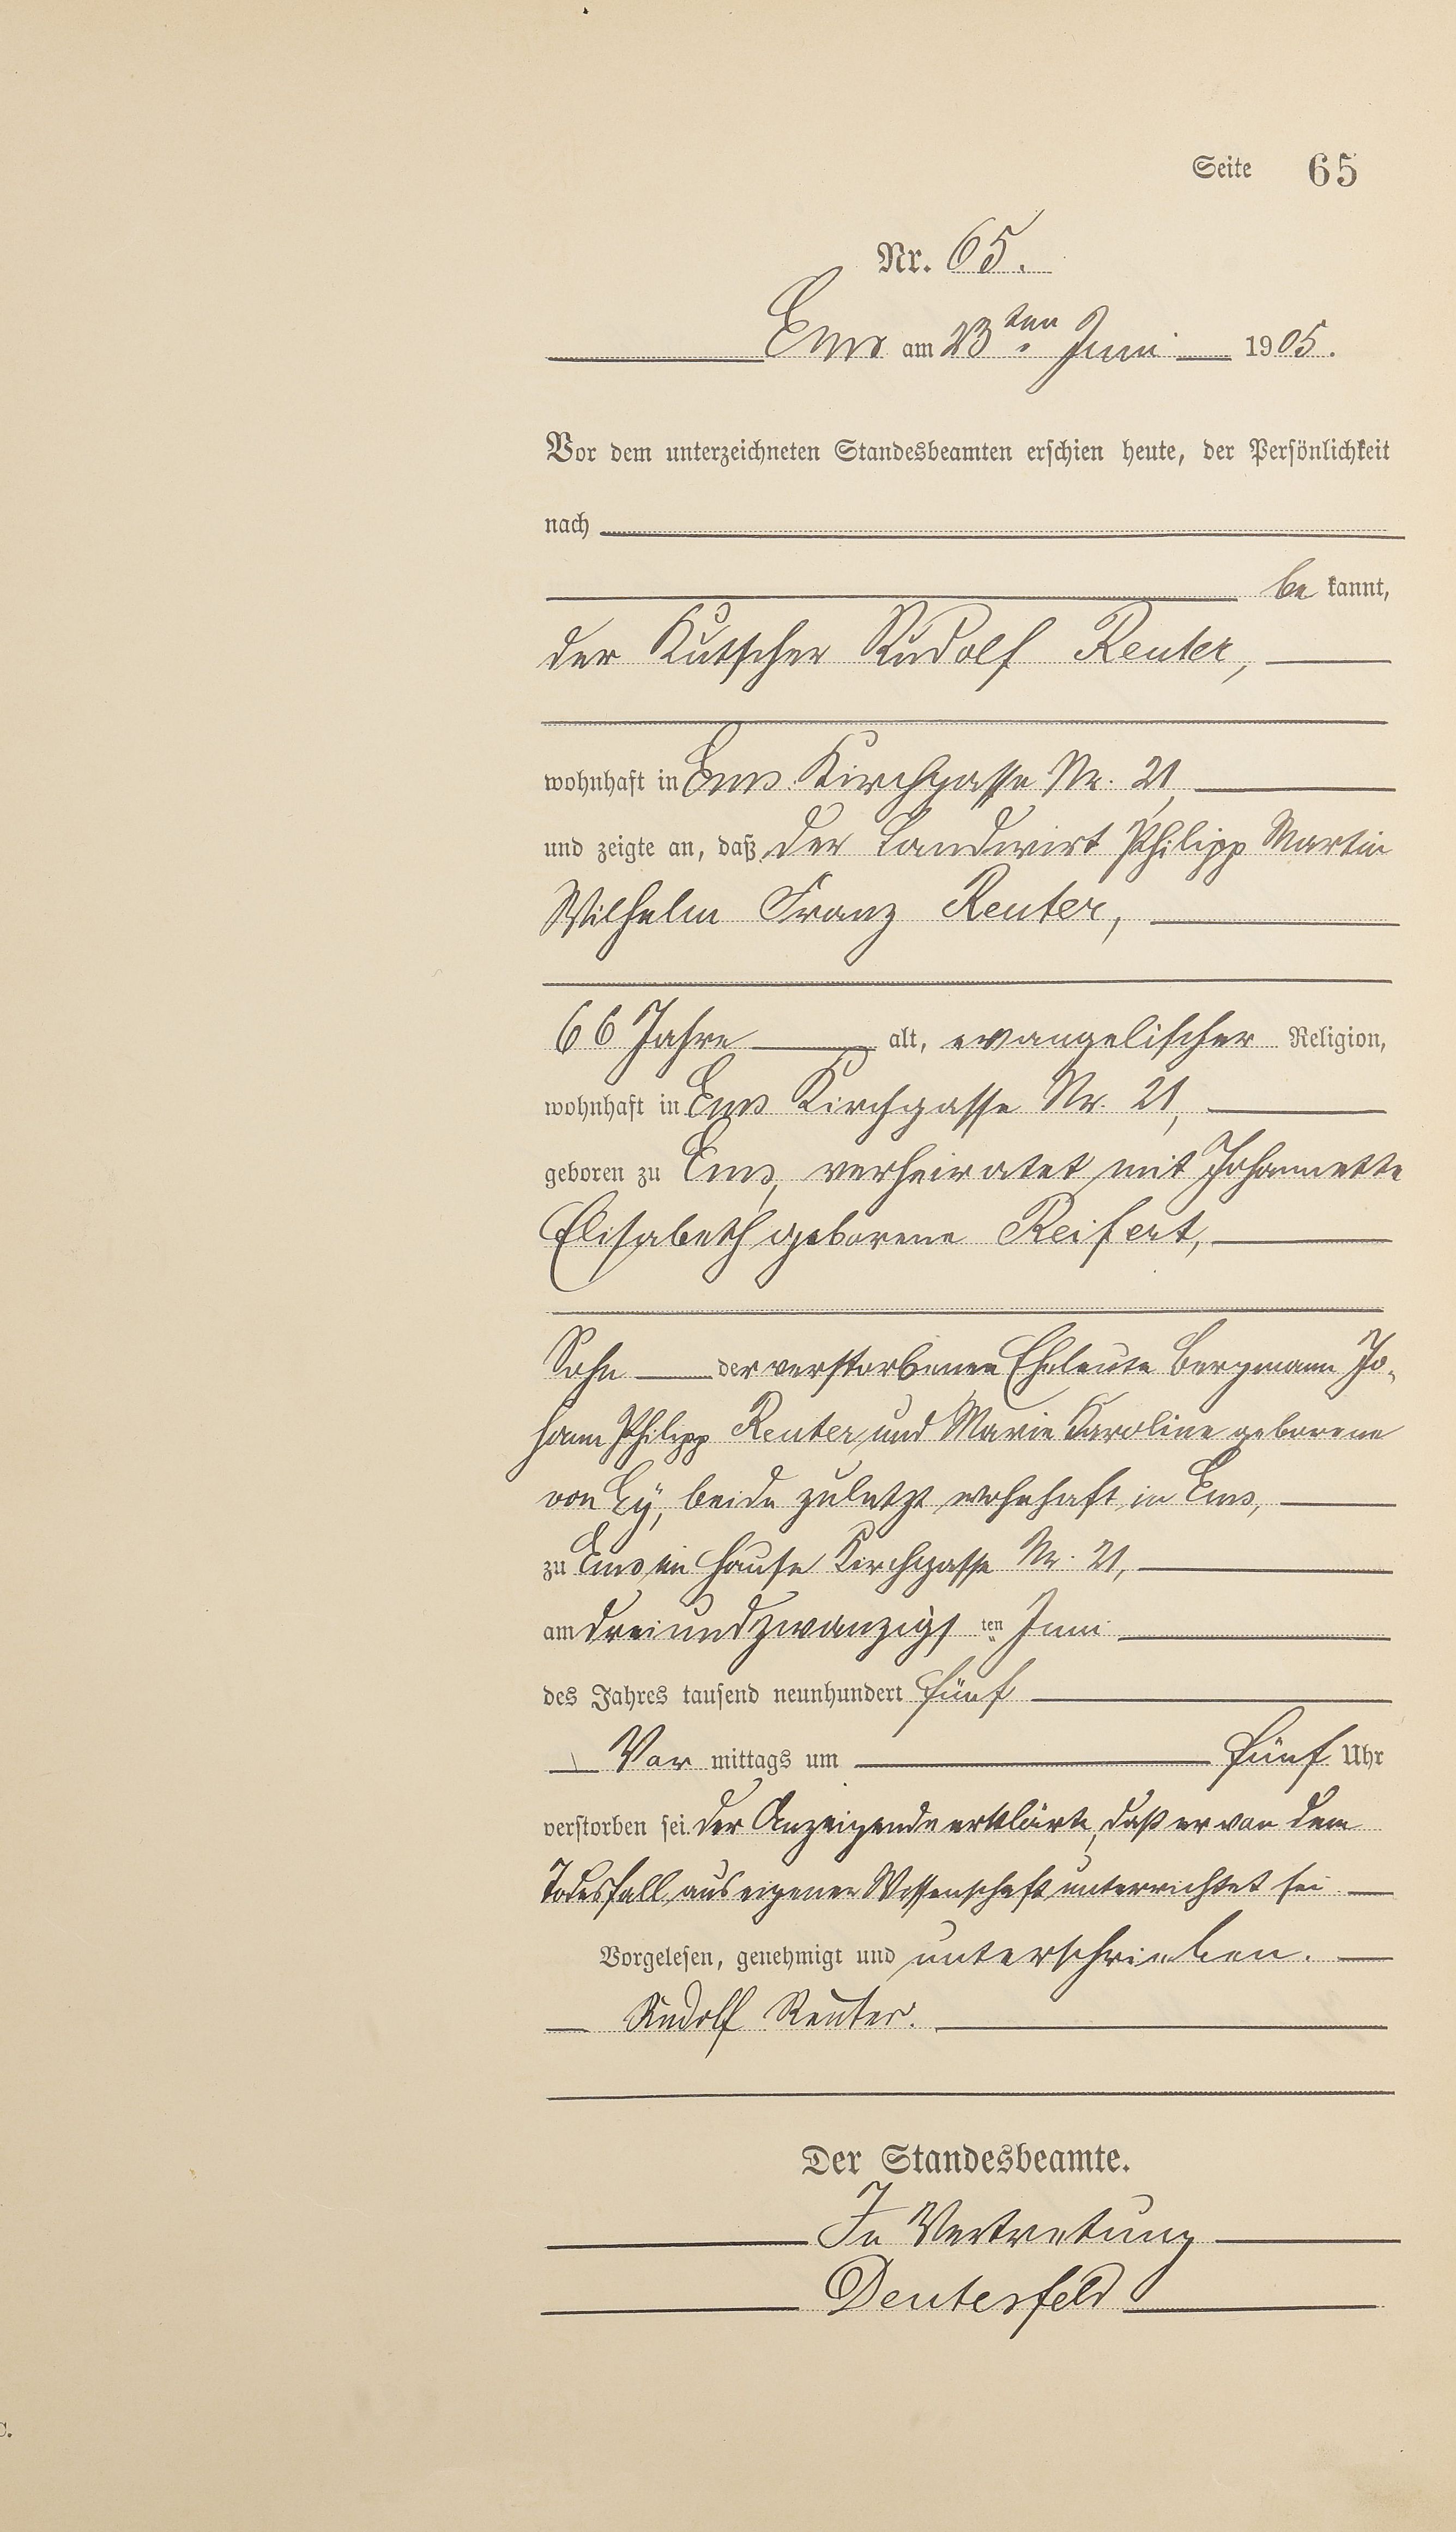 Seite 65
Nr. 65.
Ems am 23ten Juni 1905.
Vor dem unterzeichneten Standesbeamten erschien heute, der Persönlichkeit
nach
be kannt,
der Kutscher Rudolf Reuter,
wohnhaft in Ems Kirchgasse Nr. 21
und zeigte an, daß der Landwirt Philipp Martin
Wilhelm Franz Reuter,
66 Jahre alt, evangelischer Religion,
wohnhaft in Ems Kirchgasse Nr. 21,
geboren zu Ems, verheiratet mit Johannette
Elisabeth geborene Reifert,
Sohn der verstorbenen Eheleute Bergmann Jo-
hann Philipp Reuter und Marie Karoline geborene
von Eÿ, beide zuletzt wohnhaft in Ems,
zu Ems im Hause Kirchgasse Nr. 21,
am dreiundzwanzigs ten Juni
des Jahres tausend neunhundert fünf
Vor mittags um fünf Uhr
verstorben sei. Der Anzeigende erklärte, daß er von dem
Todesfall aus eigener Wissenschaft unterrichtet sei
Vorgelesen, genehmigt und unterschrieben.
Rudolf Reuter.
Der Standesbeamte.
In Vertretung
Deutesfeld
C.